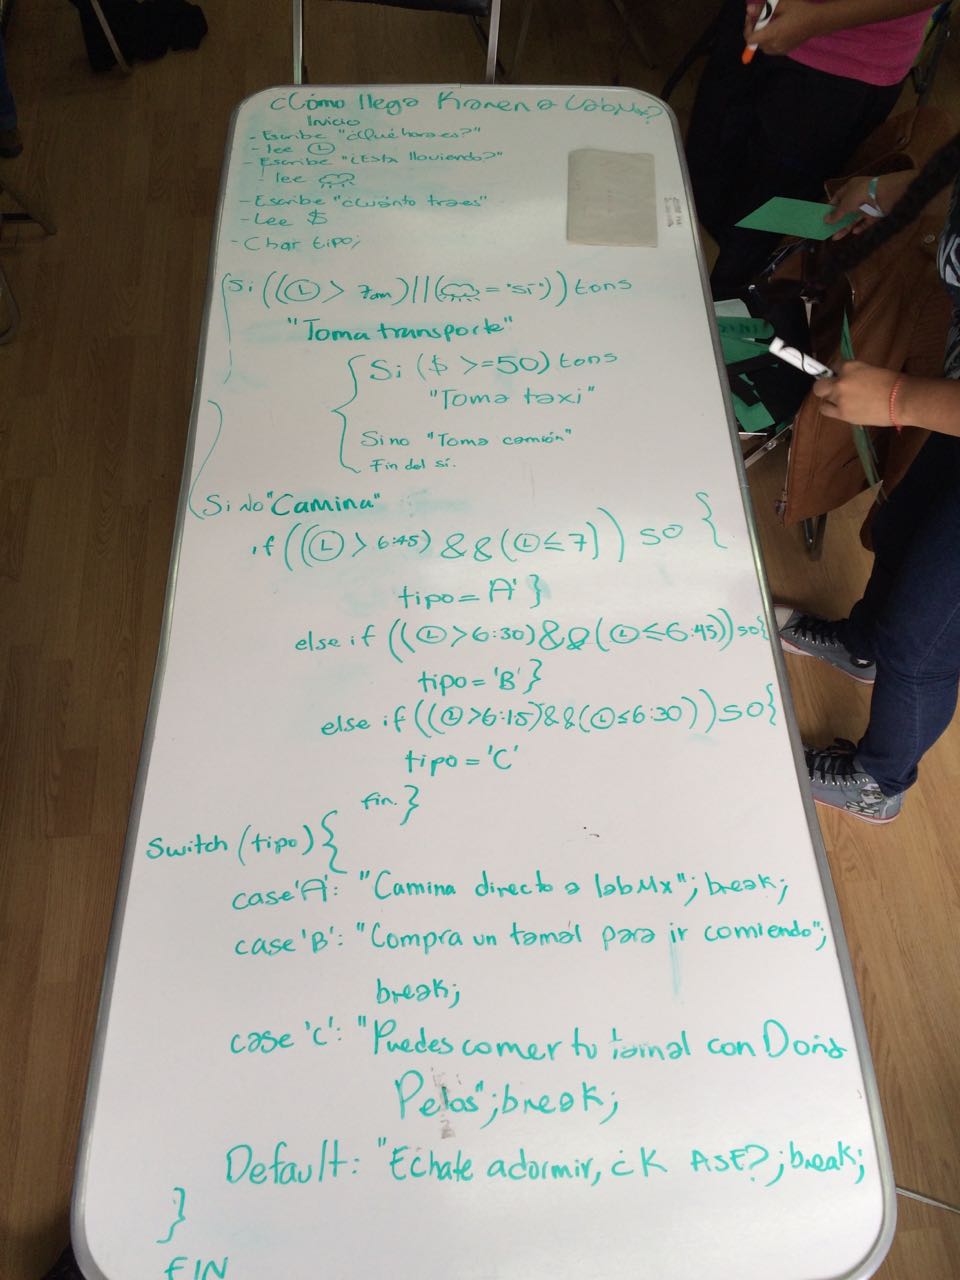 ¿Cómo llega Karen a LabMx?
Inicio
- Escribe "¿Qué hora es?"
- lee
- Escribe "¿Esta lloviendo?"
- lee
- Escribe "¿Cuánto traes"
- Lee $
- Char tipo;
Si (( > 7am)||( = "sí")) tons
"Toma transporte"
Si ($ >=50) tons
"Toma taxi"
Sino "Toma camión"
Fin del sí.
Si No "Camina"
if (( > 6:45) && ( ≤ 7)) so {
tipo = 'A' }
else if (( >6:30) && ( ≤6:45)) so{
tipo = 'B' }
else if (( >6:15) && ( ≤6:30)) so{
tipo = 'C'
fin. }
Switch (tipo) {
case 'A': "Camina directo a labMx"; break;
case 'B': "Compra un tamal para ir comiendo";
break;
case 'C': "Puedes comer tu tamal con Doña
Pelos"; break;
Default: "Echate a dormir, ¿K ASE?; break;
}
FIN